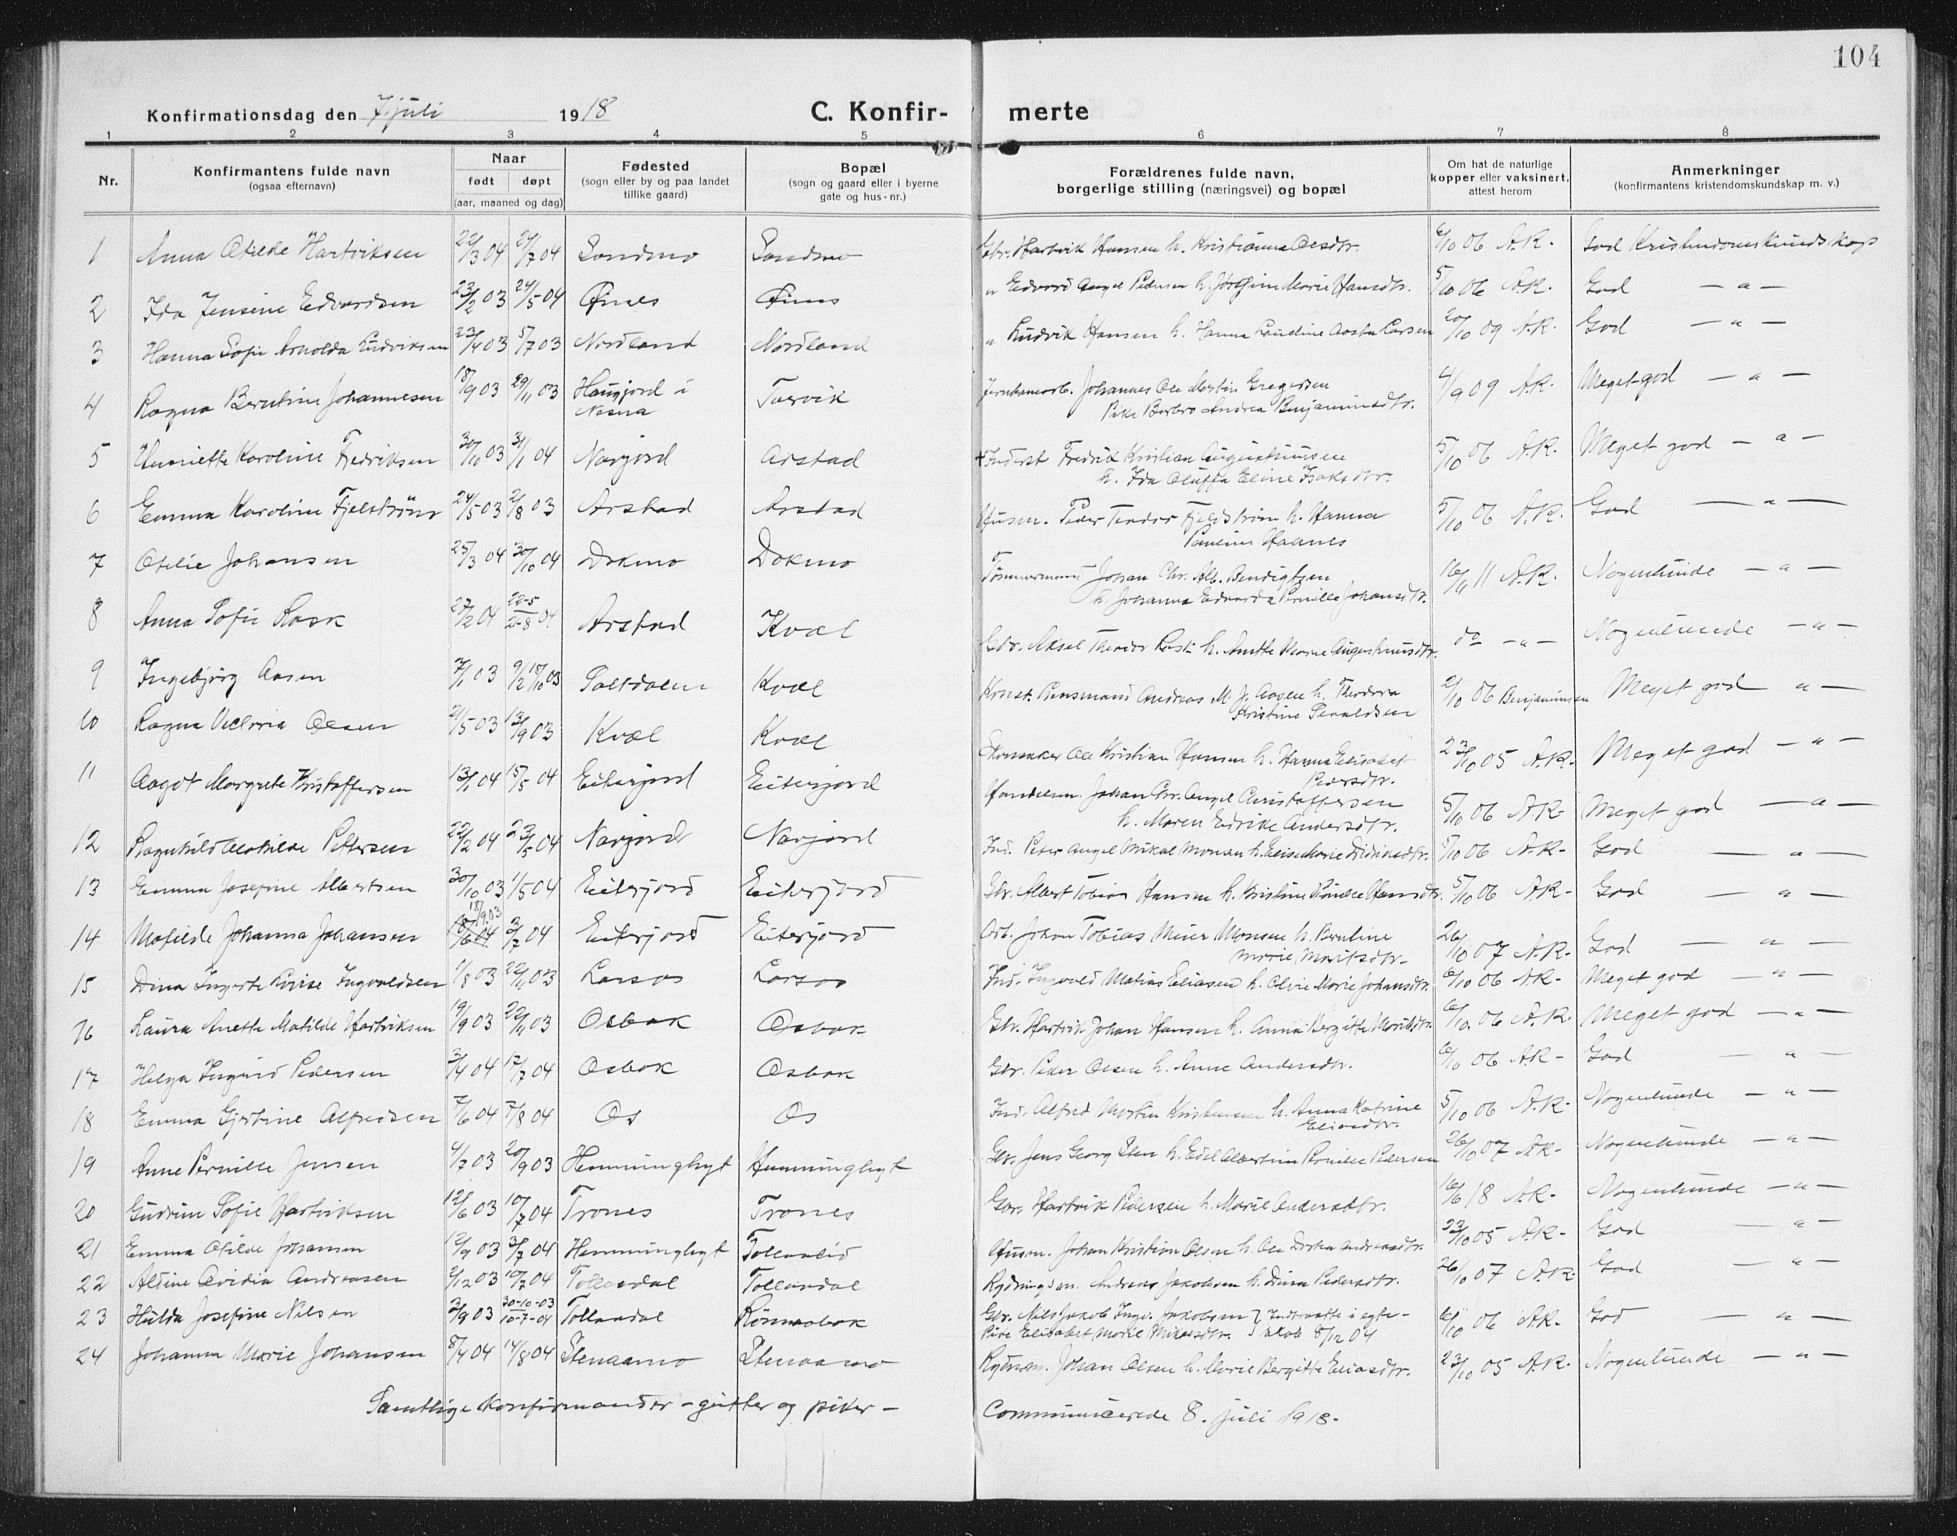 104
Konfirmationsdag den 7 juli 1918
C. Konfir-
merte
1 2 3 4 5 6 7 8
Nr.
Konfirmantens fulde navn
(ogsaa efternavn)
Naar
født døpt
(aar, maaned og dag)
Fødested
(sogn eller by og paa landet
tillike gaard)
Bopæl
(sogn og gaard eller i byerne
gate og hus-nr.)
Forældrenes fulde navn,
borgerlige stilling (næringsvei) og bopæl
Om hat de naturlige
kopper eller vaksinert,
attest herom
Anmerkninger
(konfirmantens kristendomskundskap m. v.)
1 Anna Otilde Hartviksen 22/3 04 24/7 04 Sandmo Sandmo Gbr. Hartvik Hansen h. Kristianna Olesdtr. 6/10 06 A.K. God Kristendomskundskap
2 Ida Jensine Edvardsen 23/2 03 24/5 04 Øines Øines " Edvard Angel Pedersen h. Marie Hansdtr. 5/10 06 A.K. God — " —
3 Hanna Sofie Arnolda Ludviksen 23/4 03 5/7 03 Nordland Nordland " Ludvik Hansen h. Hanna Larsen 20/10 09 A.K. God — " —
4 Ragna Berntine Johannesen 18/9 03 29/11 03 Haugjord i
Nesna
Torvik Johannes Ole Martin Gregersen
Pike Barbro Andrea Benjaminsdtr.
4/9 09 A.K. Meget god — " —
5 Henriette Karoline Fredriksen 30/10 03 3/1 04 Navjord Arstad + Inderst Fredrik Kristian Augustinussen
h. Ida Oluffa Eline Isaksdtr.
5/10 06 A.K. Meget god — " —
6 Emma Karoline Fjelstrøm 24/5 03 2/8 03 Arstad Arstad Husm. Peder Teodor Fjeldstrøm h. Hanna
Pauline Haanes
5/10 06 A.K. God — " —
7 Otilie Johansen 25/3 04 30/10 04 Dokmo Dokmo Tømmermand Johan Chr. Alb. Bendigtsen
h. Johanna Edvarda Pernille Johansdtr.
16/9 11 A.K. Nogenlunde — " —
8 Anna Sofie Rask 27/2 04 22-5
21-8 04 Arstad Kvæl Gbr. Aksel Theodor h. Anette Marie Augustinusdtr. do — " — Nogenlunde — " —
9 Ingebjørg Aasen 7/1 03 9/2 18/10 03 Saltdalen Kvæl Andreas M. J. Aasen h. Theodora
Kristine
2/10 06 Benjaminsen Meget god — " —
10 Ragna Victoria Olsen 21/5 03 13/9 03 Kvæl Kvæl Skomaker Ole Kristian Hansen h. Hanna Elisabet
Pedersdtr.
23/10 05 A.K. Meget god — " —
11 Aagot Margrete Kristoffersen 13/1 04 15/5 04 Eiterjord Eiterjord Handelsm. Johan Chr. Angel Christoffersen
h. Maren Edrike Andersdtr.
5/10 06 A.K. Meget god — " —
12 Ragnhild Mathilde Pettersen 22/2 04 23/5 04 Navjord Navjord Ind. Peter Angel Mikal Monsen h. Elise Marie Didriksdtr. 5/10 06 A.K. God — " —
13 Emma Josefine Albertsen 30/10 03 1/5 04 Eiterjord Eiterjord Gbr. Albert Tobias Hansen h. Kristine Hansdtr. 5/10 06 A.K. God — " —
14 Matilde Johanna Johansen 18/9.03 3/7 04 Eiterjord Eiterjord Arb. Johan Tobias Meier Monsen h. Berntine
Marie Moritsdtr.
26/10 07 A.K. God — " —
15 Dina Ingerte Lovise Ingvaldsen 1/8 03 22/11 03 Larsos Larsos Ind. Ingvald Matias Eliasen h. Olvie Marie Johansdtr. 6/10 06 A.K. Meget god — " —
16 Laura Anette Matilde Hartviksen 19/9 03 22/11 03 Osbak Osbak Gbr. Hartvik Johan Hansen h. Anna Bergitte Moritsdtr. 6/10 06 A.K. Meget god — " —
17 Helga Ingrid Pedersen 3/4 04 17/7 04 Osbak Osbak Gbr. Peder Olsen h. Anne Andersdtr. 6/10 06 A.K. God — " —
18 Emma Gjertine Alfredsen 7/6 04 7/8 04 Os Os Ind. Alfred Martin Kristensen h. Anna Katrine
Eliasdtr.
5/10 06 A.K. Nogenlunde — " —
19 Anne Pernille Jensen 4/7 03 20/9 03 Hemminghyt Hemminghyt Gbr. Jens Georg Sten h. Edel Albertine Pernille Pedersen 26/10 07 A.K. Nogenlunde — " —
20 Gudrun Sofie Hartviksen 12/6 03 10/7 04 Trones Trones Gbr. Hartvik Pedersen h. Marie Andersdtr. 16/6 18 A.K. Nogenlunde — " —
21 Emma Otilde Johansen 12/9 03 3/7 04 Hemminghyt Tollaalid Husm. Johan Kristian Olsen h. Andreasdtr. 23/10 05 A.K. God — " —
22 Aldine Ovidia Andreasen 2/12 03 10/7 04 Tollaadal Tollaadal Rydningsm. Andreas Jakobsen h. Dina Pedersdtr. 26/10 07 A.K. God — " —
23 Hulda Josefine Nilsen 3/9 03 30-10-03
10-7-04 Tollaadal Rönnaabak Gbr. Nils Jakob Ingv. Jakobsen } Indtraadte i egte-
Pike Elisabet Marie Mikalsdtr. } skab 8/12 04
6/10 06 A.K. God — " —
24 Johanna Marie Johansen 8/4 04 14/8 04 Stenaamo Stenaamo Rydnsm. Johan Olsen h. Marie Bergitte Eliasdtr. 23/10 05 A.K. Nogenlunde — " —
Samtlige konfirmander - gutter og piker - Communicerede 8. juli 1918.